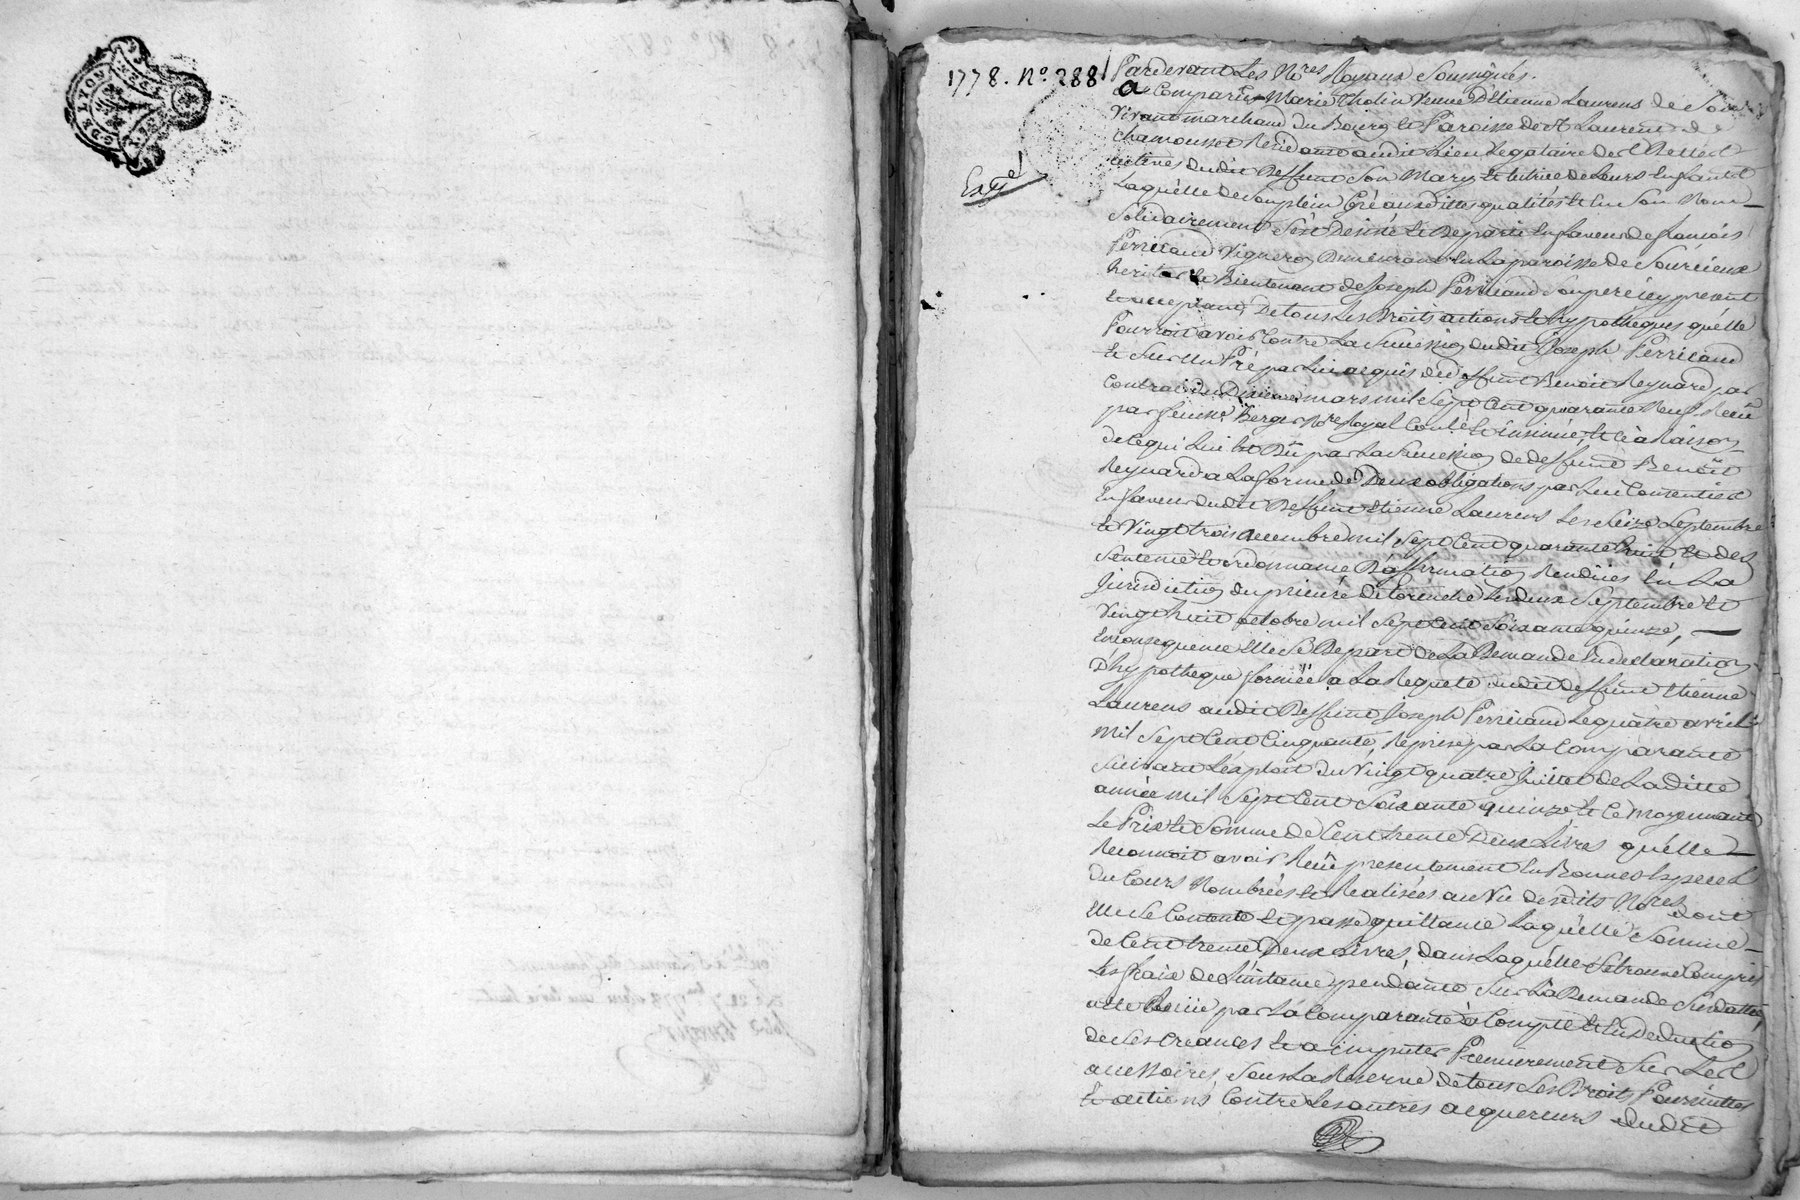 DE LYON
1778. N.º 288
Expé
Pardevant Les No.res Royaux Soussignés.
a Comparüe Marie Cholin Veuve d'Etienne Laurens de Son
Vivant marchand du Bourg et Paroisse de St Laurent de
Chamousset Residante audit Lieu Legataire
dudit Deffunt Son Mary et tutrice de Leurs Enfants
Laquelle de Son plein Gré aux dittes qualités et En Son Nom
Solidairement S'est Desisté et Departie En faveur de françois
Perricaud Vigneron Demeurant En La paroisse de Sourcieux
heritier et Bientenant de Joseph Perricaud Son pere icy present
et acceptant, De tous Les Droits actions et hypotheques qu'elle
Pourroit avoir Contre La Succession dudit Joseph Perricaud
et Sur Un Pré par Lui acquis du deffunt Benoit Reynard par
Contrat du mars mil Sept Cent quarante Neuf Reçu
par feu Me Berger No.re Royal Conlé et insinué, et Ce à Raison
de Ce qui Lui Est Dû par La Succession de deffunt Benoît
Reynard a La forme de Deux obligations par Lui Consenties
En faveur dudit Deffunt Etienne Laurens Les Seize Septembre
et Vingt trois decembre mil Sept Cent quarante huit et des
Sentence et ordonnance D'affirmation Rendües En La
Jurisdiction du prieuré de Les deux Septembre et
Vingt huit octobre mil Sept Cent Soixante quinze,
En Consequence Elle Se Depart de La Demande En declaration
D'hypotheque formée a La Requete dudit deffunt Etienne
Laurens audit Deffunt Joseph Perricaud Le quatre avril
mil Sept Cent Cinquante, Reprise par La Comparante
Suivant L'exploit du Vingt quatre Juillet de Laditte
année mil Sept Cent Soixante quinze et Ce moyennant
Le Prix et Somme de Cent trente Deux Livres qu'elle
Reconnoit avoir Reçu presentement En Bonnes Especes
du Cours Nombrées et Realisées au Vû desdits No.res dont
Elle Se Contente et passe quittance Laquelle Somme
de Cent trente Deux Livres, dans Laquelle Se trouve Compris
Les fraix de L'instance pendante Sur La Demande Susdattée,
a été Reçüe par La Comparante à Compte et En Deduction
de Ses Creances et a imputer Premierement Sur Les
accessoires, Sous La Reserve de tous Ses Droits Poursuittes
et actions Contre Les autres acquereurs dudit